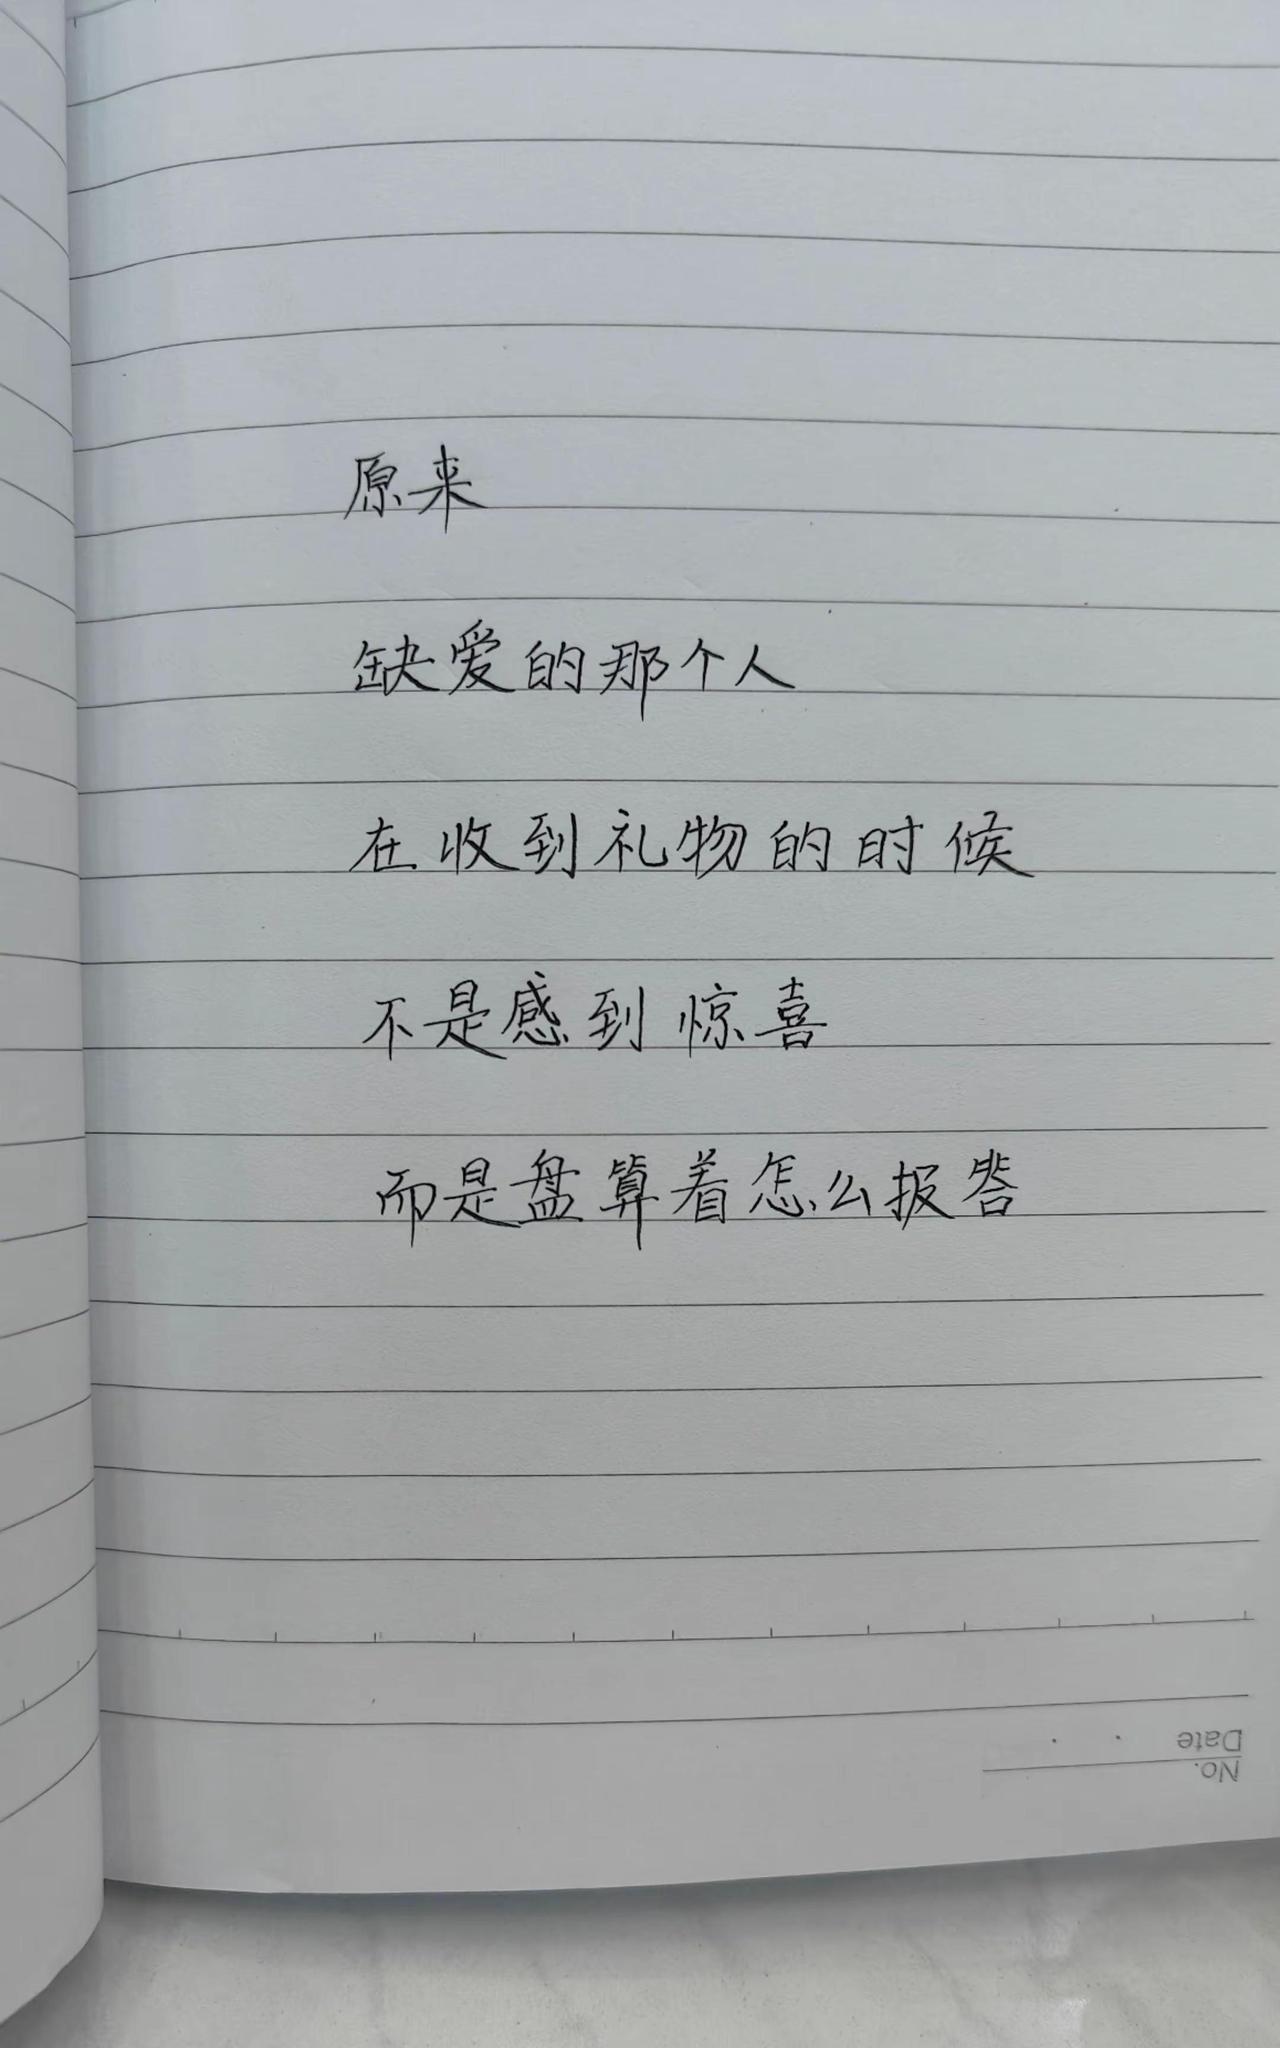 原来
缺爱的那个人
在收到礼物的时候
不是感到惊喜
而是盘算着怎么报答
Date
No.